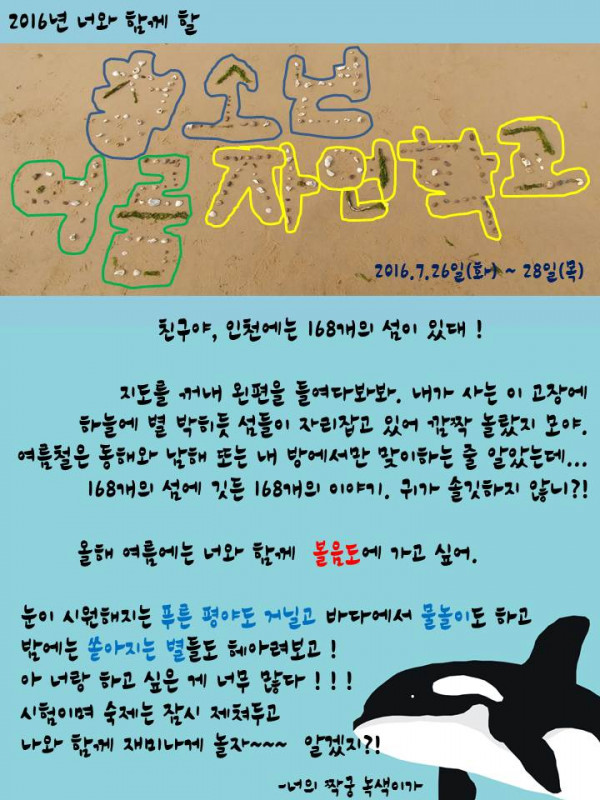 2016년 너와 함께 할
청소년
여름 자연학교
2016.7.26일(화) ~ 28일(목)
친구야, 인천에는 168개의 섬이 있대 !
지도를 꺼내 왼편을 들여다봐봐. 내가 사는 이 고장에
하늘에 별 박히듯 섬들이 자리잡고 있어 깜짝 놀랐지 모야.
여름철은 동해와 남해 또는 내 방에서만 맞이하는 줄 알았는데...
168개의 섬에 깃든 168개의 이야기. 귀가 솔깃하지 않니?!
올해 여름에는 너와 함께 볼음도에 가고 싶어.
눈이 시원해지는 푸른 평야도 거닐고 바다에서 물놀이도 하고
밤에는 쏟아지는 별들도 헤아려보고 !
아 너랑 하고 싶은 게 너무 많다 ! ! !
시험이며 숙제는 잠시 제쳐두고
나와 함께 재미나게 놀자~~~ 알겠지?!
-너의 짝궁 녹색이가